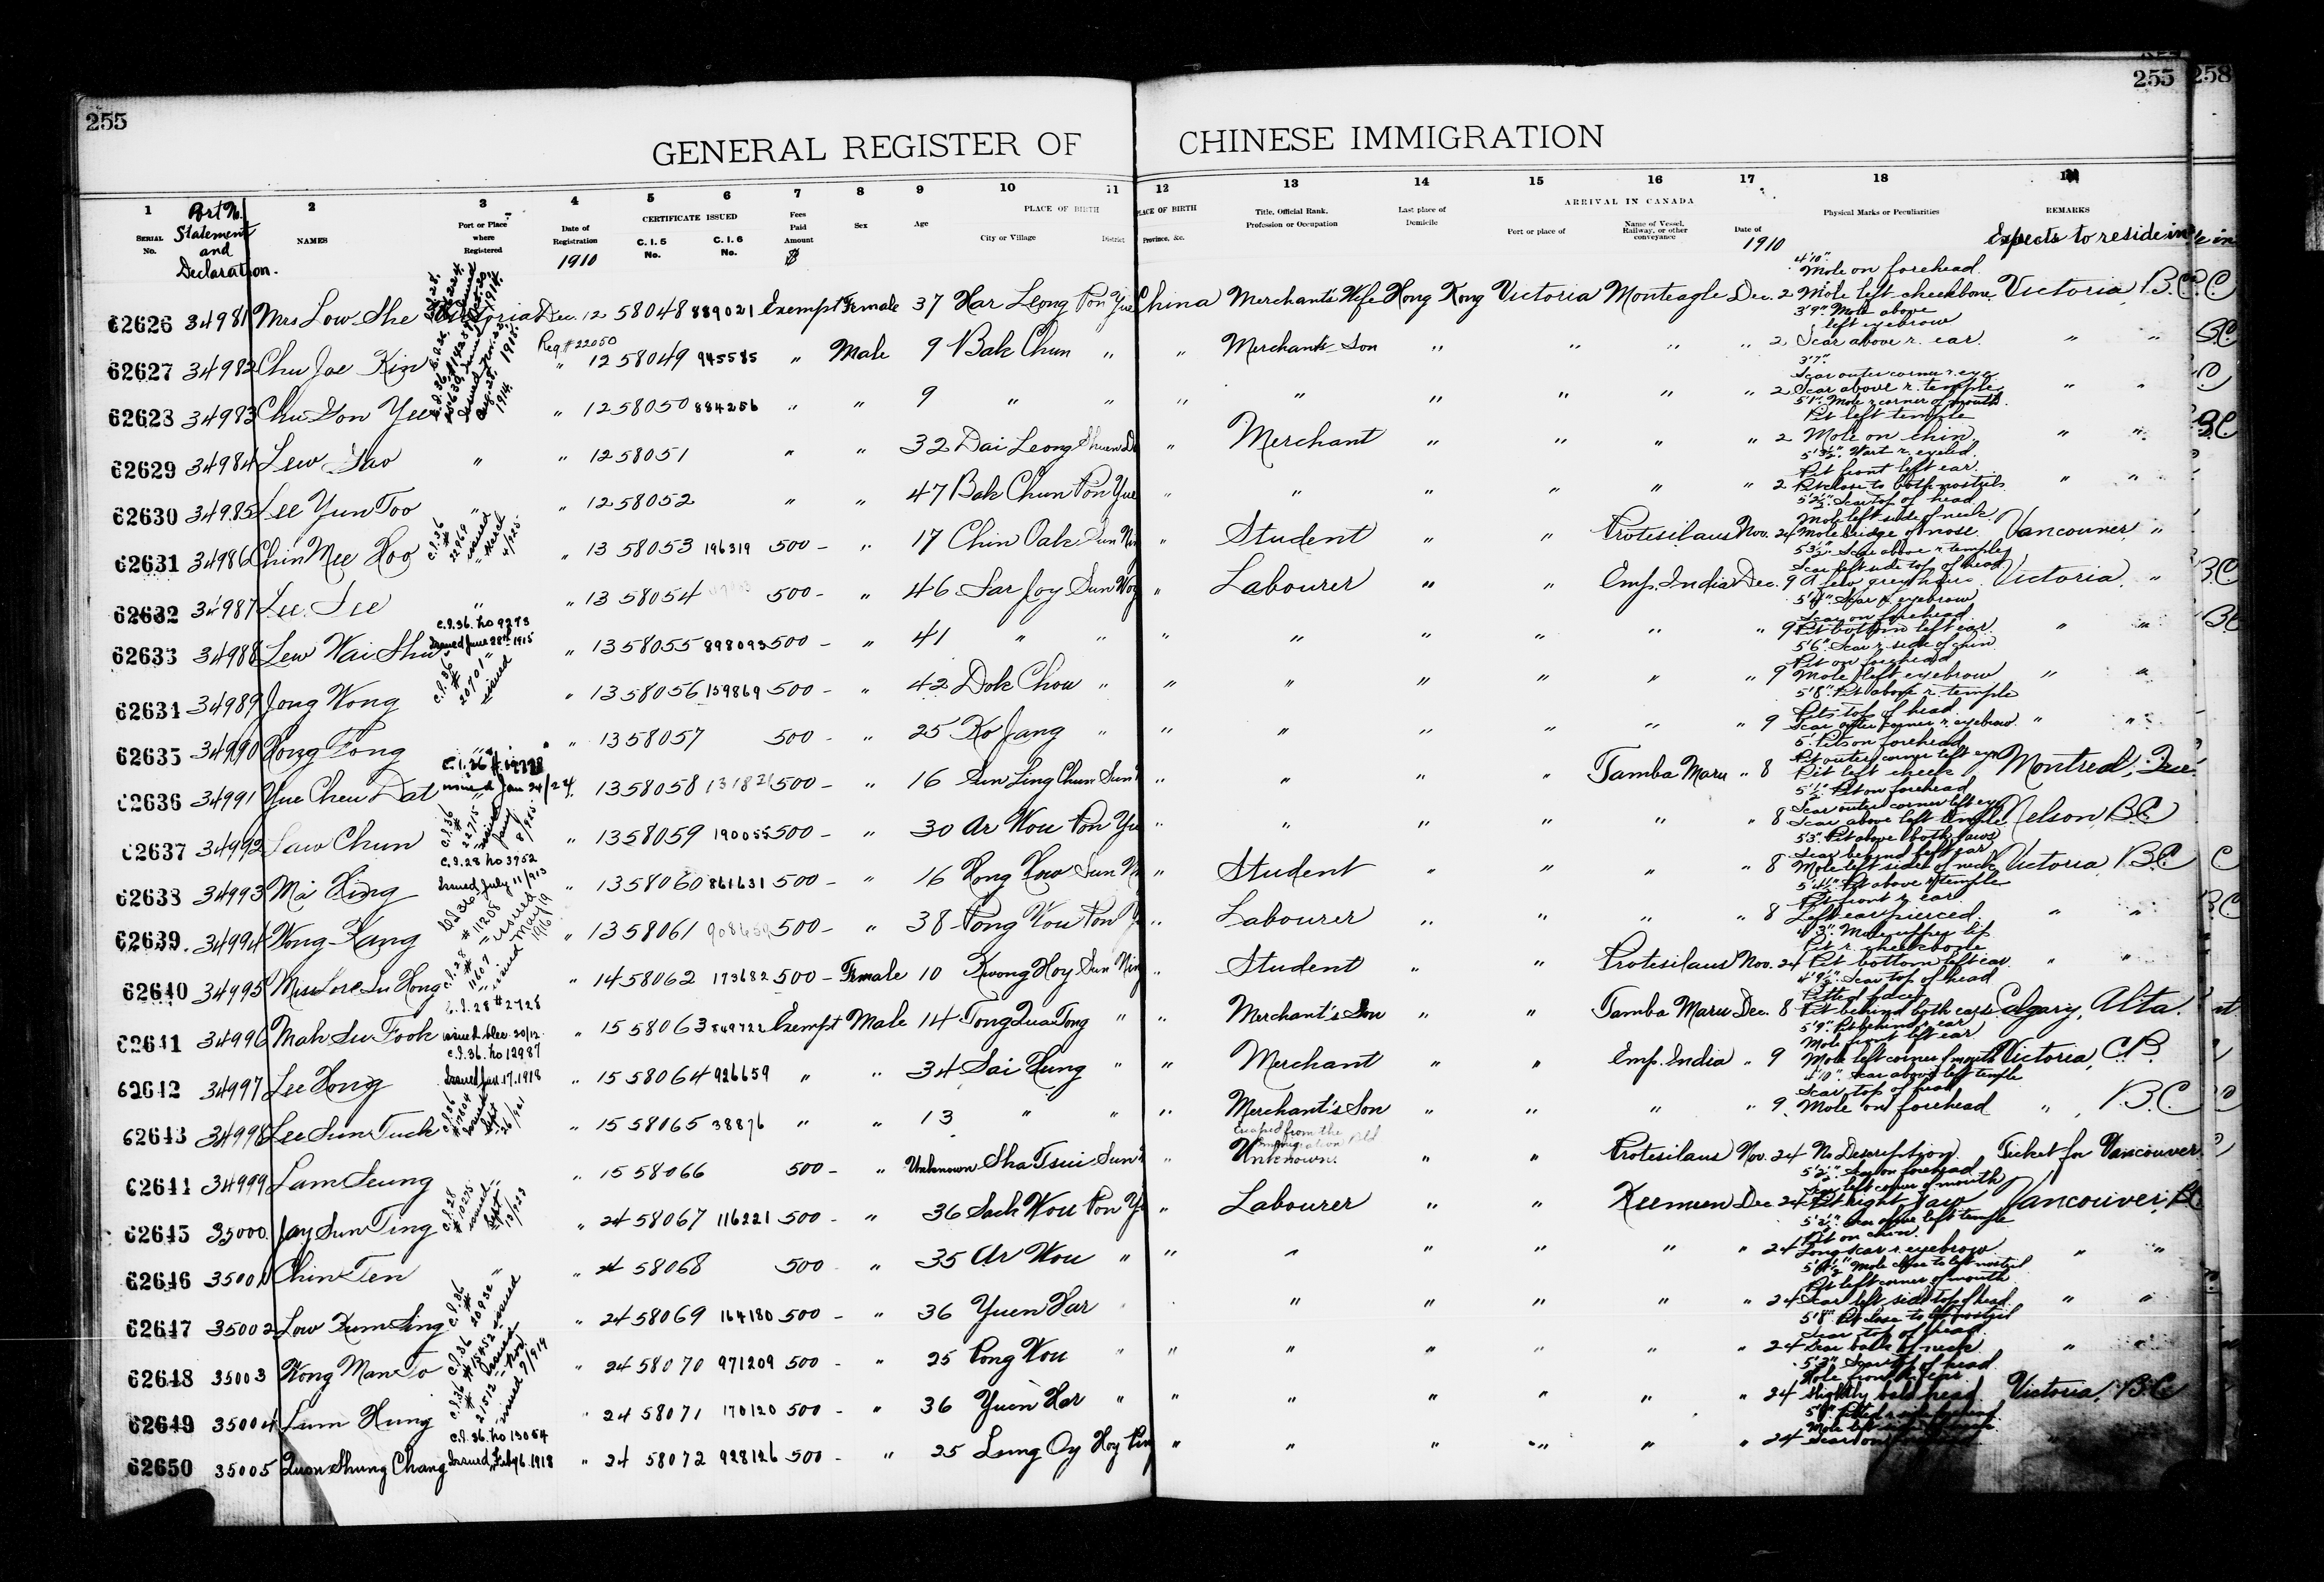 255
255
258
GENERAL REGISTER OF CHINESE IMMIGRATION
1 2 3 4 5 6 7 8 9 10 11 12 13 14 15 16 17 18
SERIAL No. Port No. Statement and Declaration. NAMES Port or Place where Registered Date of Registration 1910 CERTIFICATE ISSUED C. I. 5 No. C. I. 6 No. Fees Paid Amount $ Sex Age PLACE OF BIRTH City or Village District PLACE OF BIRTH Province, &c. Title, Official Rank, Profession or Occupation Last place of Domicile ARRIVAL IN CANADA Port or place of Name of Vessel, Railway, or other conveyance Date of 1910 Physical Marks or Peculiarities REMARKS Expects to reside in
62626 34981 Mrs Low She Victoria Dec. 12 58048 889021 Exempt Female 37 Har Leong Pon Yue China Merchant's Wife Hong Kong Victoria Monteagle Dec. 2 4'10". Mole on forehead. Mole left cheekbone Victoria, B.C.
62627 34982 Chu Joe Kin Reg # 22050 " 12 58049 945585 " Male 9 Bak Chun " " Merchant's Son " " " " 2 3'9" Mole above left eyebrow Scar above r. ear. " "
62628 34983 Chu Gon Yee " 12 58050 884256 " " 9 " " " " " " " " 2 3'7". Scar outer corner r. eye Scar above r. temple " "
62629 34984 Lew Gao " " 12 58051 " " 32 Dai Leong " Merchant " " " " 2 5'1" Mole r corner of mouth. Pit left temple Mole on chin " "
62630 34985 Lee Yun Too " " 12 58052 " " 47 Bak Chun Pon Yue " " " " " " 2 5'3½". Wart r. eyelid. Pit front left ear. Pit close to both nostrils " "
62631 34986 Chin Mee Hoo C.I.36 # 22969 issued March 4/925 " 13 58053 196319 500 - " 17 Chin Oak Sun Nin " Student " " Protesilaus Nov. 24 5'2½" Scar top of head Mole left side of neck Mole bridge of nose. Vancouver "
62632 34987 Lee See " " 13 58054 500 - " 46 Sar Joy Sun Woy " Labourer " " Emp. India Dec. 9 5'3½" Scar above r temple Scar left side top of head A few grey hairs Victoria "
62633 34988 Lew Wai Shu C.I.36. No 9273 Issued June 28th 1915 " 13 58055 898093 500 - " 41 " " " " " " " " 9 5'4" Scar r. eyebrow Scar on forehead Pit bottom left ear. " "
62634 34989 Jong Wong C.I.36 # 20701 issued " 13 58056 139869 500 - " 42 Dok Chou " " " " " " " 9 5'6" Scar r. side of chin. Pit on forehead Mole left eyebrow " "
62635 34990 Hong Fong " " 13 58057 500 - " 25 Ko Jang " " " " " " " 9 5'8" Pit above r. temple Pits top of head Scar outer corner r. eyebrow " "
62636 34991 Yue Cheu Dat issued Jan 24/24. 13 58058 500 - " 16 Sun Ling Chun Sun " " " " Tamba Maru " 8 5'. Pits on forehead Pit outer corner left eye Pit left cheek Montreal, Que.
62637 34992 Saw Chun C.I.36 # 22715 issued Jany 8/925 " 13 58059 190055 500 - " 30 Ar Kou Pon Yu " " " " " " 8 5'1½" Pit on forehead Scar outer corner left eye Scar above left temple Nelson, B.C.
62638 34993 Ma Hing C.I.28 No 3952 Issued July 11/913 " 13 58060 861631 500 - " 16 Hong How Sun N " Student " " " " 8 5'3" Pit above both jaws Scar behind left ear Mole left side of neck Victoria, B.C.
62639 34994 Wong Kang C.I.36 # 11208 issued May 19 1916 " 13 58061 500 - " 38 Pong Kou Pon " Labourer " " " " 8 5'4½" Pit above r. temple Pit front r. ear Left ear pierced. " "
62640 34995 Miss Lore Su Hong C.I.28 # 11607 issued " 14 58062 173682 500 - Female 10 Kwong Hoy Sun Nin " Student " " Protesilaus Nov. 24 4'3". Mole upper lip Pit r. cheekbone Pit bottom left ear. " "
62641 34996 Mah Su Fook C.I.28 # 2728 issued Dec. 30/12. " 15 58063 849722 Exempt Male 14 Tong Quai Tong " " Merchant's Son " " Tamba Maru Dec. 8 4'9½" Scar top of head Pitted face Pit behind both ears Calgary, Alta.
62642 34997 Lee Hong C.I.36. No 12987 Issued Jan. 17. 1918 " 15 58064 926659 " " 34 Sai Hung " " Merchant " " Emp. India " 9 5'9" Pit behind r. ear Mole front left ear Mole left corner of mouth Victoria,
62643 34998 Lee Sun Tuck C.I.36 # 17604 issued Sept 26/921 " 15 58065 38876 " " 13 " " " Merchant's Son " " " " 9 4'10". Scar above left temple Scar top of head Mole on forehead " , B.C.
62644 34999 Lam Seung " " 15 58066 500 - " Unknown Sha Tsui Sun " Escaped from the Immigration Bld Unknown. " " Protesilaus Nov. 24 No Description. Ticket for Vancouver
62645 35000 Jay Sun Ting C.I.28 # 10275 issued Sept 13/923 " 24 58067 116221 500 - " 36 Sach Kou Pon Yu " Labourer " " Keemun Dec. 24 5'2½" Scar on forehead Scar left corner of mouth Pit right jaw Vancouver, B.C.
62646 35001 Chin Ten " " 24 58068 500 - " 35 Ar Kou " " " " " " " 24 5'2½" Scar above left temple Pit on chin. Long scar r. eyebrow. " "
62647 35002 Low Kum Sing C.I.36 # 20932 issued " 24 58069 164180 500 - " 36 Yuen Har " " " " " " 24 Mole close to left nostril Pit left corner of mouth Scar left side top of head. " "
62648 35003 Wong Man To C.I.36 # 15452 issued Nov 7/919 " 24 58070 971209 500 - " 25 Pong Kou " " " " " " " 24 5'8" Pit close to left nostril Scar top of head Scar back of neck " "
62649 35004 Lum Hung C.I.36 # 21512 issued " 24 58071 170120 500 - " 36 Yuen Har " " " " " " " 24 5'3" Scar top of head. Mole front r. ear Slightly bald head Victoria, B.C.
62650 35005 Quon Shung Chang C.I.36. No 13064 Issued Feby 6. 1918 " 24 58072 928126 500 - " 25 Lung Oy Hoy Pin " " " " " " 24